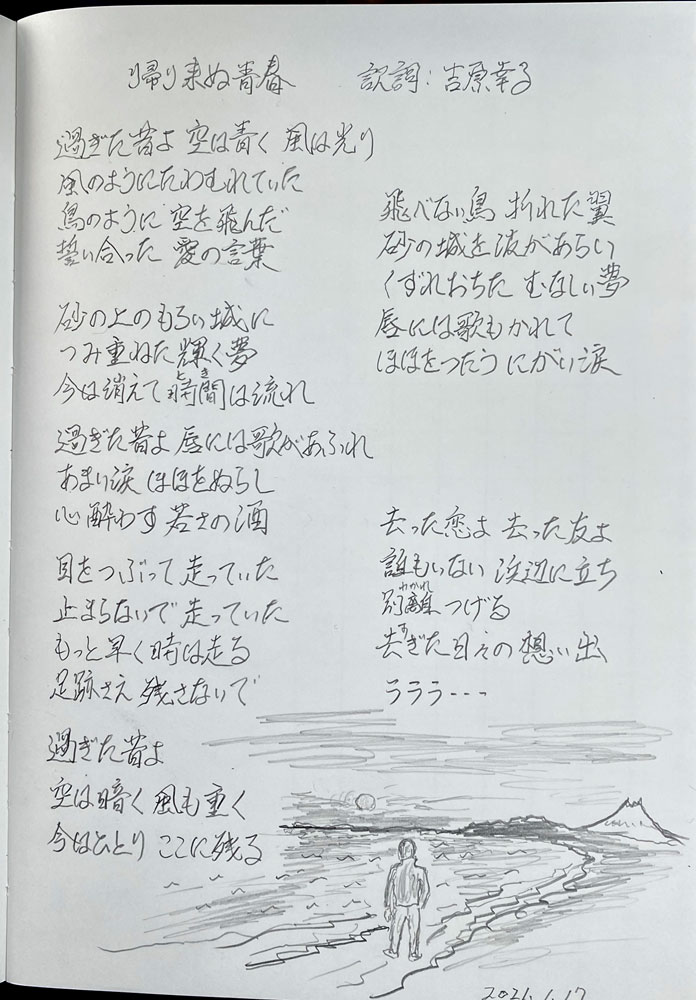 帰り来ぬ青春　訳詞：吉原幸子
過ぎた昔よ 空は青く 風は光り
風のようにたわむれていた
鳥のように 空を飛んだ
誓い合った 愛の言葉
砂の上のもろい城に
つみ重ねた 輝く夢
今は消えて 時間は流れ
とき
過ぎた昔よ 唇には歌があふれ
あまい涙 ほほをぬらし
心酔わす 若さの酒
目をつぶって 走っていた
止まらないで 走っていた
もっと早く 時は走る
足跡さえ 残さないで
過ぎた昔よ
空は暗く 風も重く
今はひとり ここに残る
飛べない鳥 折れた翼
砂の城を 波があらい
くずれおちた むなしい夢
唇には歌もかれて
ほほをつたう にがい涙
去った恋よ 去った友よ
誰もいない 浜辺に立ち
別離つげる
わかれ
去ぎた日々の 想い出
す
ラララ---